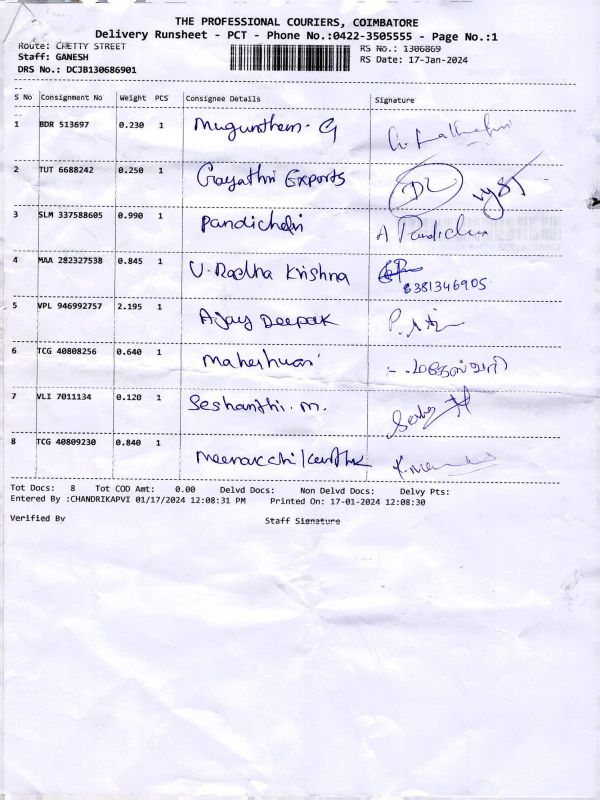 THE PROFESSIONAL COURIERS, COIMBATORE
Delivery Runsheet - PCT - Phone No.:0422-3505555 - Page No.:1
Route: CHETTY STREET
RS No.: 1306869
Staff: GANESH
RS Date: 17-Jan-2024
DRS No.: DCJB130686901
S No Consignment No Weight PCS Consignee Details Signature
1 BDR 513697 0.230 1 Mugunthem. G
2 TUT 6688242 0.250 1 Gayathri Exports
3 SLM 337588605 0.990 1 Pandichelvi A Pandichelvi
4 MAA 282327538 0.845 1 V. Radha Krishna
8381346905
5 VPL 946992757 2.195 1 Ajay Deepak
6 TCG 40808256 0.640 1 Maheshwari
7 VLI 7011134 0.120 1 Seshanthi. M.
8 TCG 40809230 0.840 1
Tot Docs: 8 Tot COD Amt: 0.00 Delvd Docs: Non Delvd Docs: Delvy Pts:
Entered By :CHANDRIKAPVI 01/17/2024 12:08:31 PM Printed On: 17-01-2024 12:08:30
Verified By Staff Signature